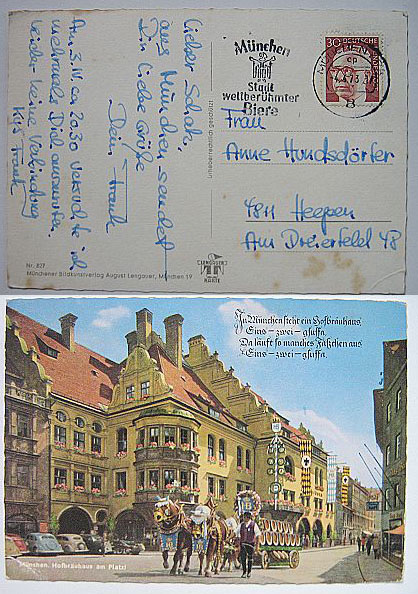 Lieber Schatz,
aus München sendet
Dir liebe Grüße
Dein Frank
Am 3.IV. ca 20.30 versucht ich
mehrmals Dich anzurufen.
leider keine Verbindung
Kuß Frank
München
Stadt
weltberühmter
Biere
30
DEUTSCHE
BUNDESPOST
Frau
Anne Hundsdörfer
4811 Heepen
Am Dreierfeld 48
Urheberrechtlich geschützt!
Nr. 827
Münchener Bildkunstverlag August Lengauer, München 19
LENGAUER
KARTE
In München steht ein Hofbräuhaus
Eins – zwei – gsuffa.
Da läuft so manches Fäßchen aus
Eins – zwei – gsuffa.
München. Hofbräuhaus am Platzl